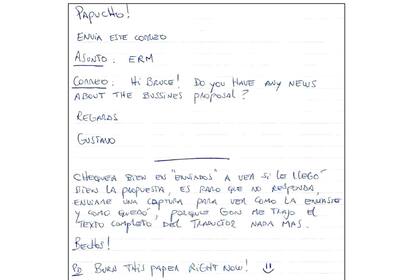 PAPUCHO!
ENVIA ESTE CORREO
ASUNTO: ERM
CORREO: HI BRUCE! DO YOU HAVE ANY NEWS
ABOUT THE BUSSINES PROPOSAL?
REGARDS
GUSTAVO
CHEQUEA BIEN EN "ENVIADOS" A VER SI LE LLEGÓ
BIEN LA PROPUESTA, ES RARO QUE NO RESPONDA,
ENVIAME UNA CAPTURA PARA VER COMO LA ENVIASTE
Y COMO QUEDÓ, PORQUE GON ME TRAJO EL
TEXTO COMPLETO DEL TRADUCTOR NADA MAS.
BECHOS!
PD BURN THIS PAPER RIGHT NOW!